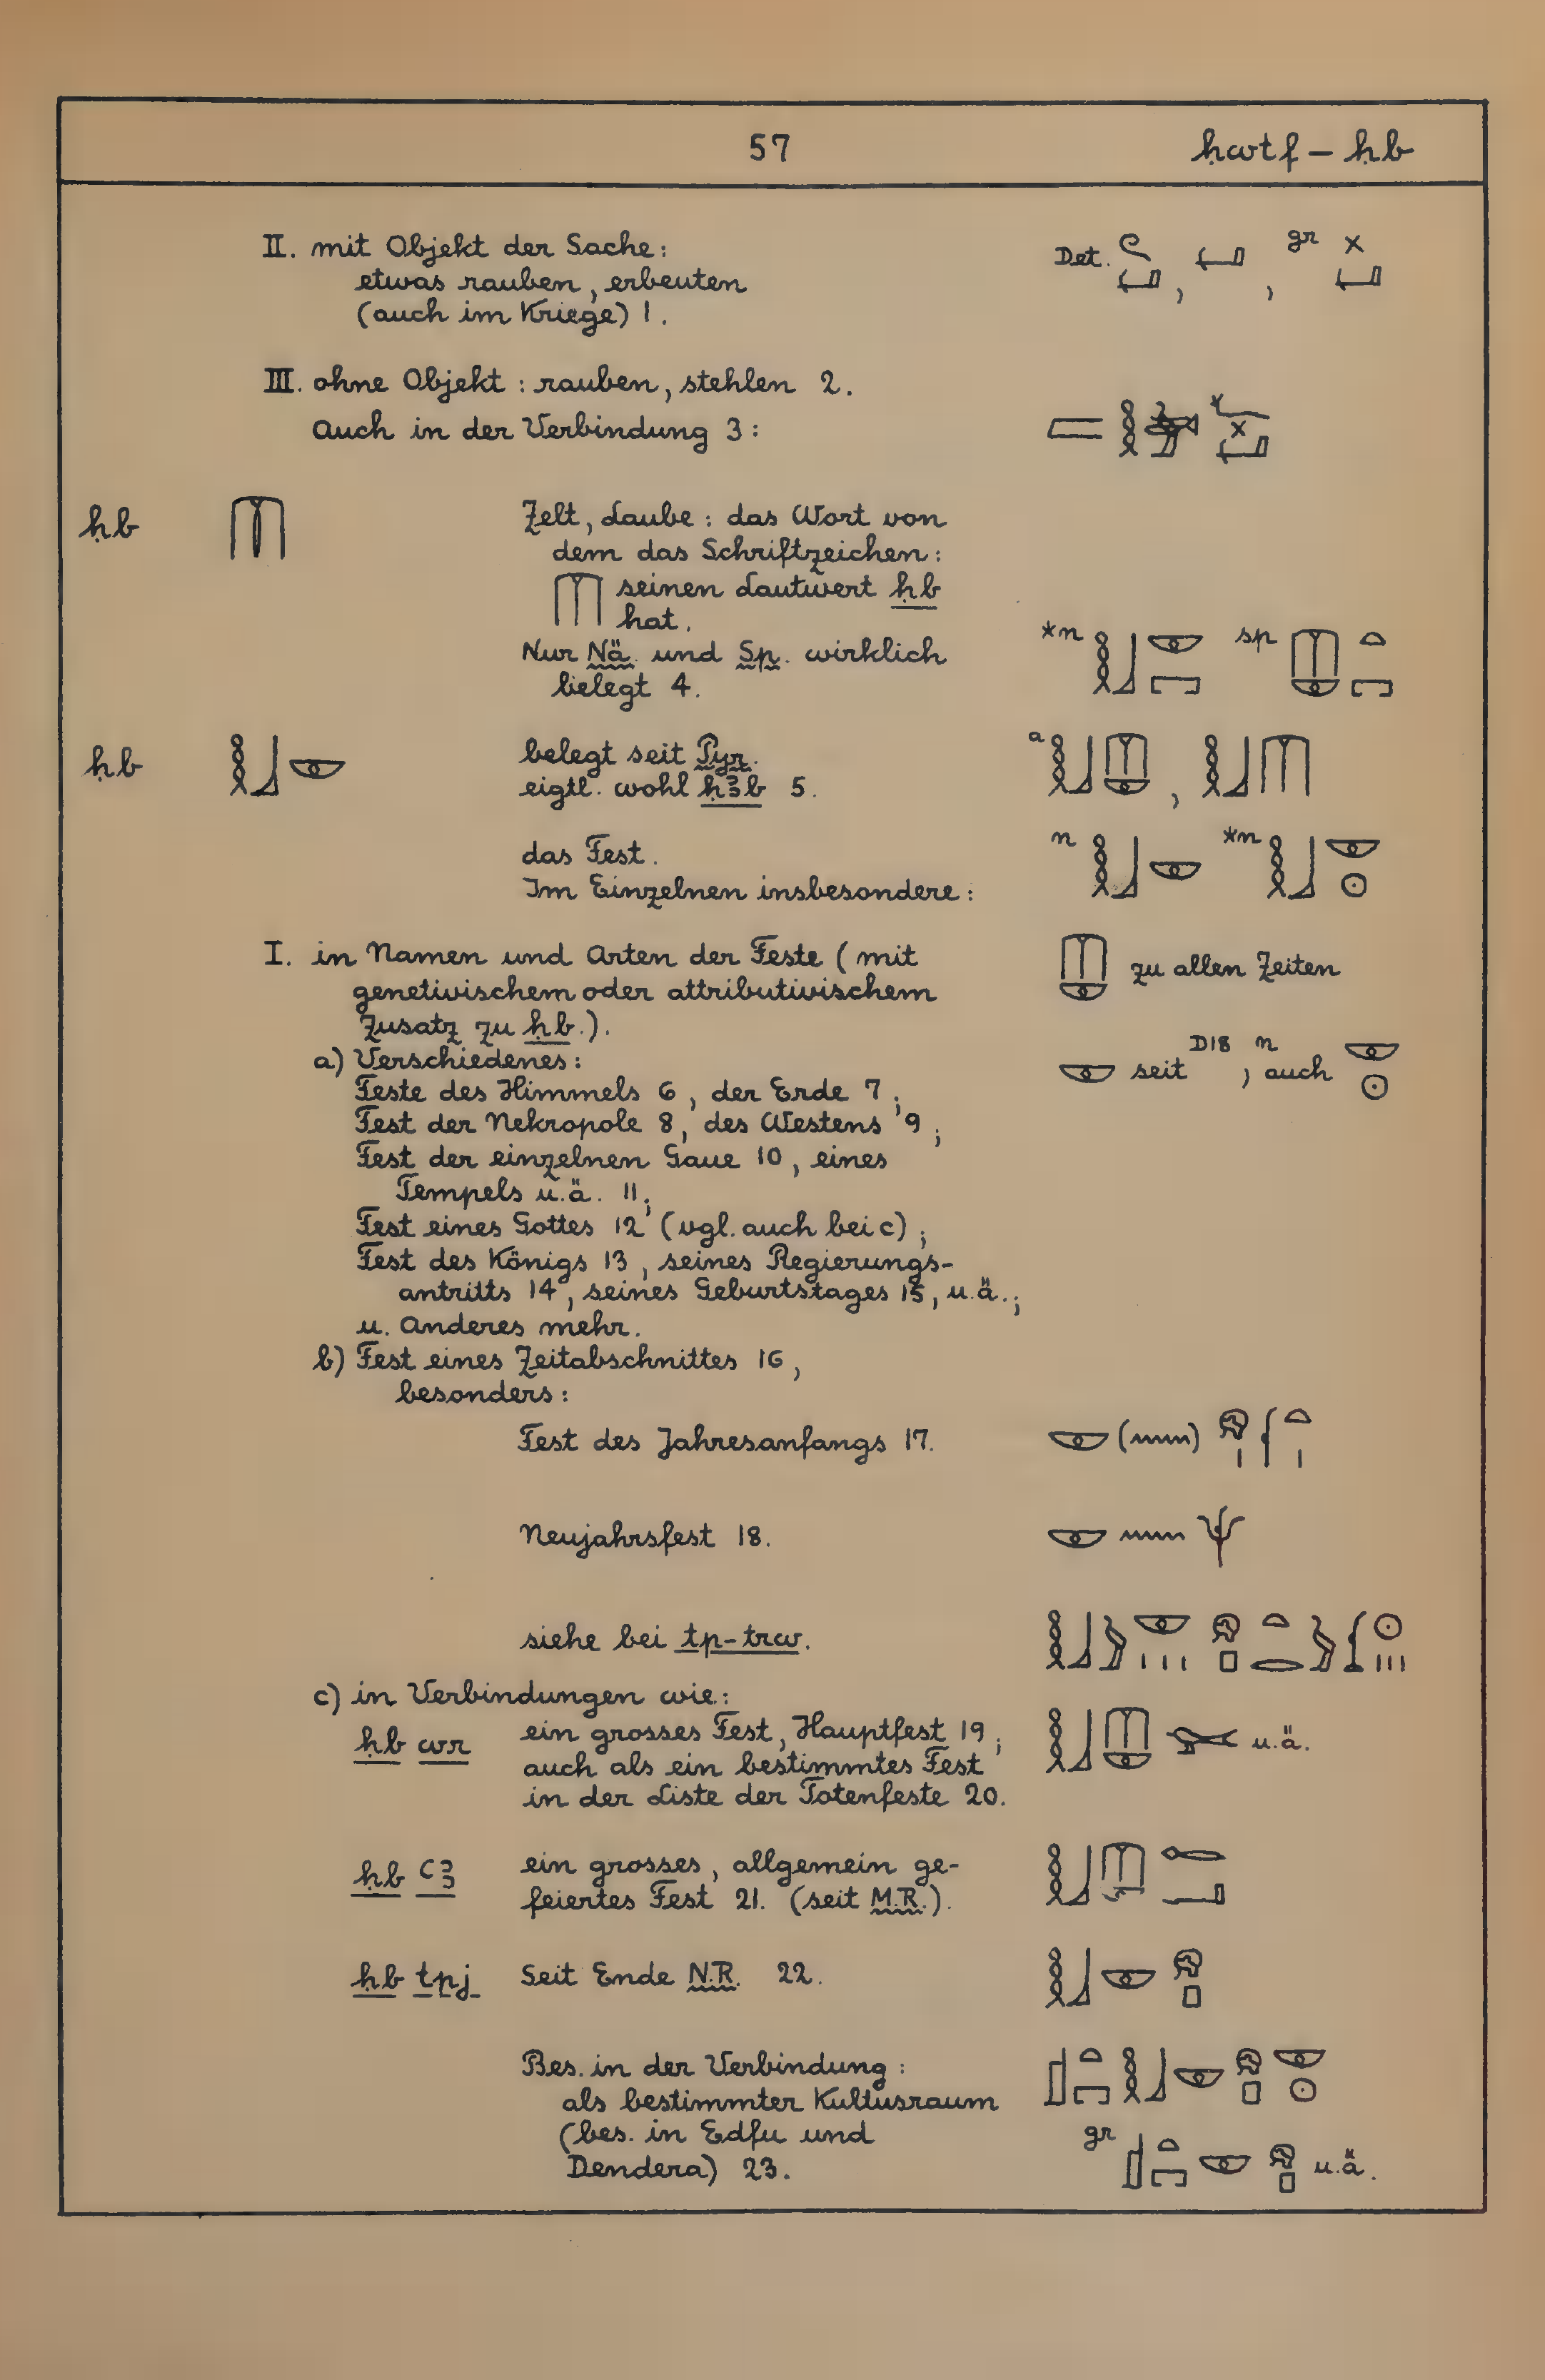 57
ḥwtf – ḥb
II. mit Objekt der Sache:
etwas rauben, erbeuten
(auch im Kriege) 1.
Det. , , gr
III. ohne Objekt: rauben, stehlen 2.
Auch in der Verbindung 3:
ḥb
Zelt, Laube: das Wort von
dem das Schriftzeichen:
seinen Lautwert ḥb
hat.
Nur Nä. und Sp. wirklich
belegt 4.
*n sp
ḥb
belegt seit Pyr.
eigtl. wohl ḥꜣb 5.
a ,
das Fest.
Im Einzelnen insbesondere:
n *n
I. in Namen und Arten der Feste (mit
genetivischem oder attributivischem
Zusatz zu ḥb.).
zu allen Zeiten
seit D18 n, auch
a) Verschiedenes:
Feste des Himmels 6, der Erde 7;
Fest der Nekropole 8, des Westens 9;
Fest der einzelnen Gaue 10, eines
Tempels u.ä. 11;
Fest eines Gottes 12 (vgl. auch bei c);
Fest des Königs 13, seines Regierungs-
antritts 14, seines Geburtstages 15, u.ä.;
u. Anderes mehr.
b) Fest eines Zeitabschnittes 16,
besonders:
Fest des Jahresanfangs 17.
Neujahrsfest 18.
siehe bei tp-trw.
c) in Verbindungen wie:
ḥb wr ein grosses Fest, Hauptfest 19;
auch als ein bestimmtes Fest
in der Liste der Totenfeste 20.
u.ä.
ḥb ꜥꜣ ein grosses, allgemein ge-
feiertes Fest 21. (seit M.R.).
ḥb tpj Seit Ende N.R. 22.
Bes. in der Verbindung:
als bestimmter Kultusraum
(bes. in Edfu und
Dendera) 23.
gr u.ä.